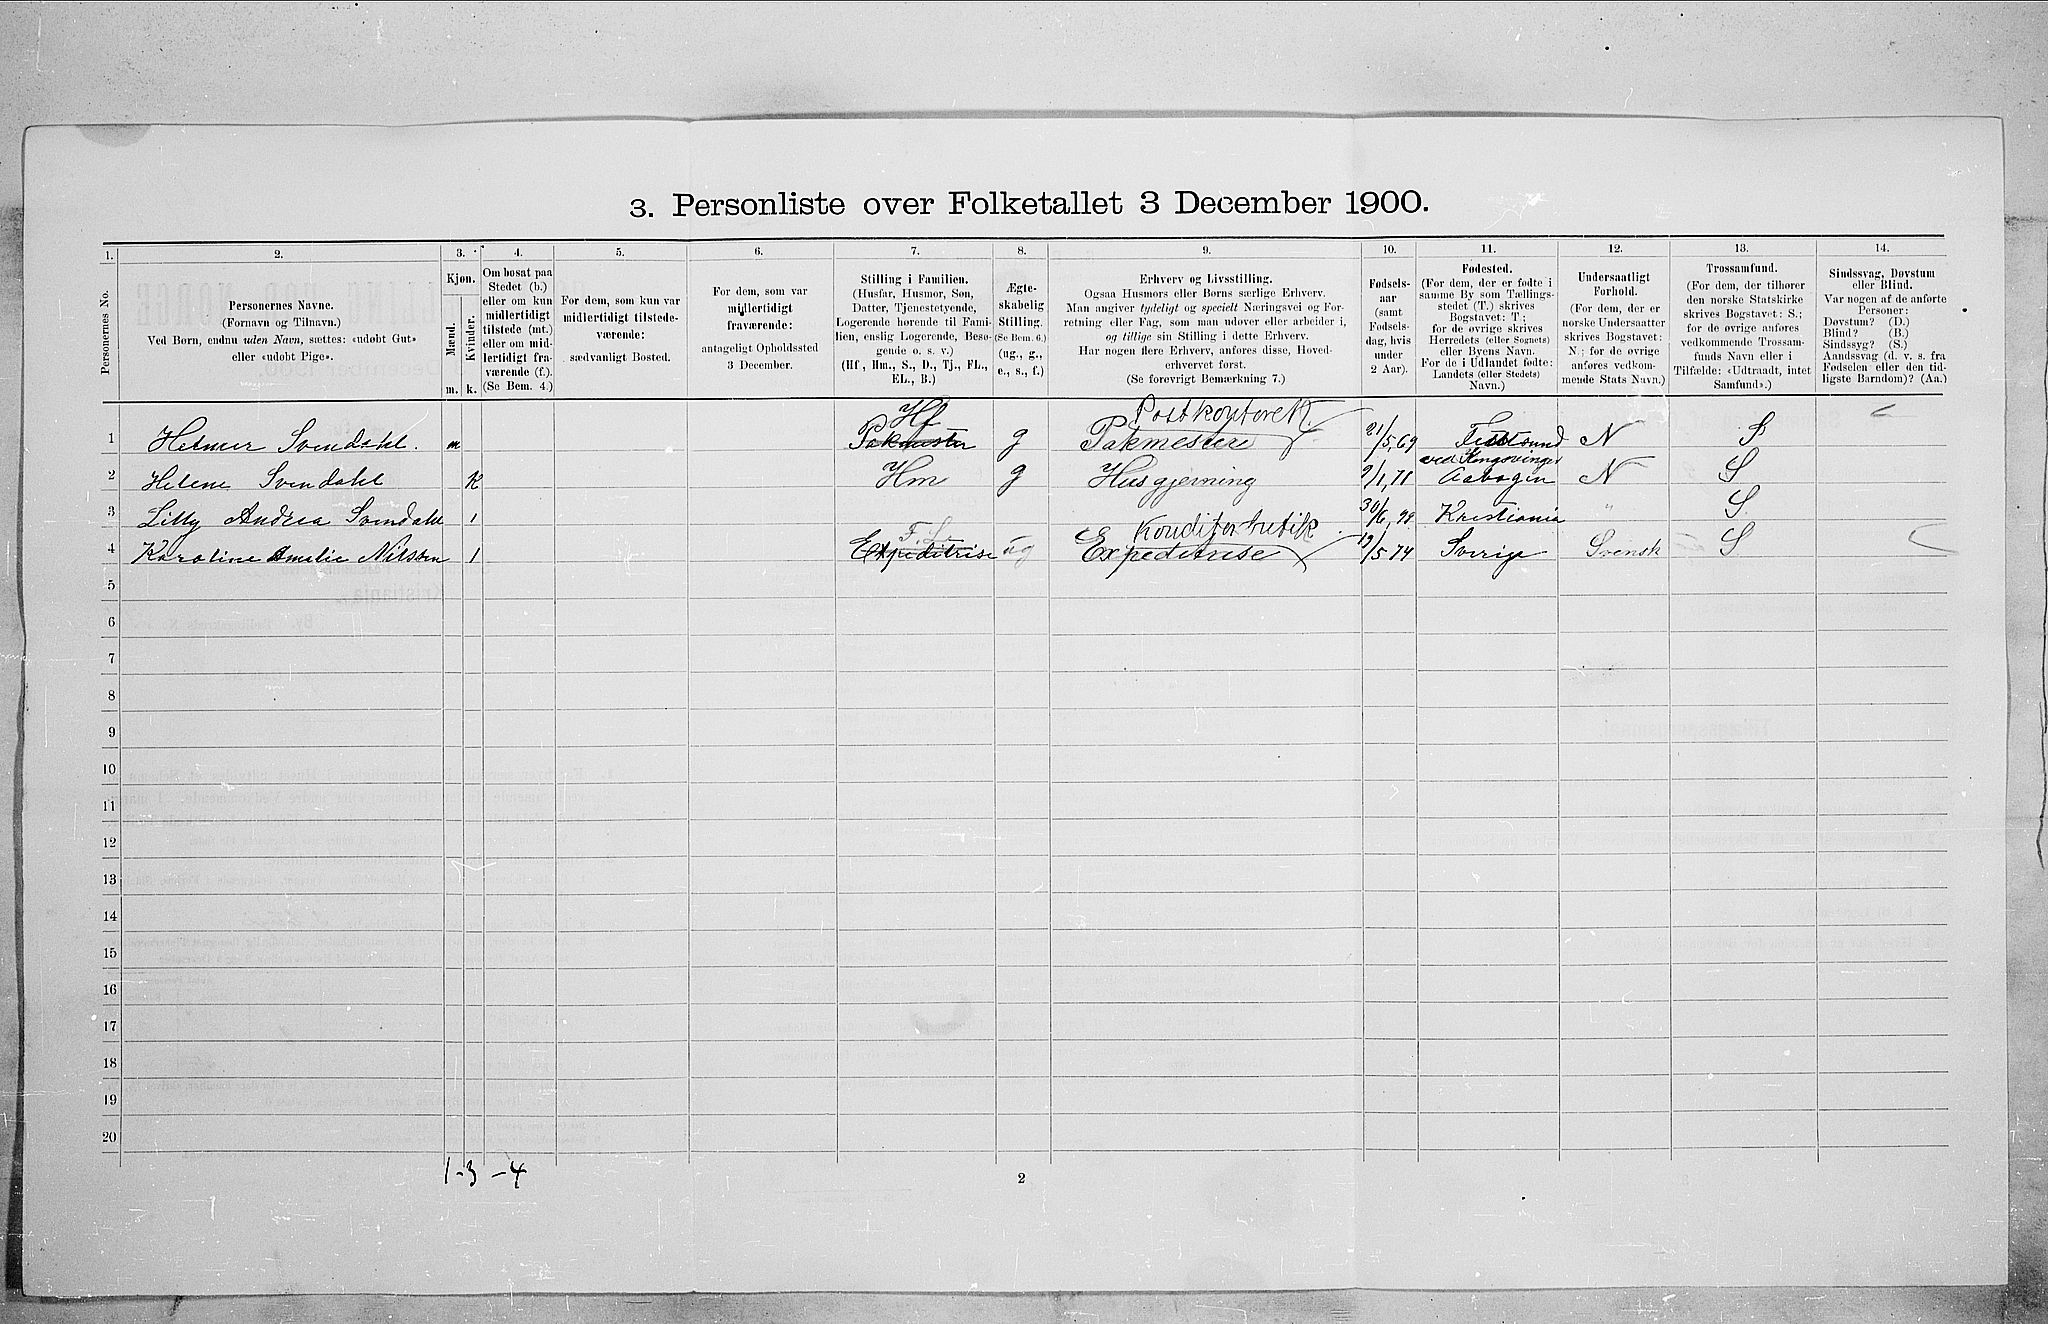 3. Personliste over Folketallet 3 December 1900.
1. 2. 3. 4. 5. 6. 7. 8. 9. 10. 11. 12. 13. 14.
Personernes No.
Personernes Navne.
(Fornavn og Tilnavn.)
Ved Børn, endnu uden Navn, sættes: «udøbt Gut»
eller «udøbt Pige».
Kjøn.
Mænd.
Kvinder.
m. k.
Om bosat paa
Stedet (b.)
eller om kun
midlertidigt
tilstede (mt.)
eller om mid-
lertidigt fra-
værende (f.).
(Se Bem. 4.)
For dem, som kun var
midlertidigt tilstede-
værende:
sædvanligt Bosted.
For dem, som var
midlertidigt
fraværende:
antageligt Opholdssted
3 December.
Stilling i Familien.
(Husfar, Husmor, Søn,
Datter, Tjenestetyende,
Logerende hørende til Fami-
lien, enslig Logerende, Besø-
gende o. s. v.)
(Hf, Hm., S., D., Tj., FL.,
EL., B.)
Ægte-
skabelig
Stilling.
(Se Bem. 6.)
(ug., g.,
e., s., f.)
Erhverv og Livsstilling.
Ogsaa Husmors eller Børns særlige Erhverv.
Man angiver tydeligt og specielt Næringsvei og For-
retning eller Fag, som man udøver eller arbeider i,
og tillige sin Stilling i dette Erhverv.
Har nogen flere Erhverv, anføres disse, Hoved-
erhvervet først.
(Se forøvrigt Bemærkning 7.)
Fødsels-
aar
(samt
Fødsels-
dag, hvis
under
2 Aar).
Fødested.
(For dem, der er fødte i
samme By som Tællings-
stedet (T.) skrives
Bogstavet: T.;
for de øvrige skrives
Herredets (eller Sognets)
eller Byens Navn.
For de i Udlandet fødte:
Landets (eller Stedets)
Navn.)
Undersaatligt
Forhold.
(For dem, der er
norske Undersaatter
skrives Bogstavet:
N.; for de øvrige
anføres vedkom-
mende Stats Navn.)
Trossamfund.
(For dem, der tilhører
den norske Statskirke
skrives Bogstavet: S.;
for de øvrige anføres
vedkommende Trossam-
funds Navn eller i
Tilfælde: «Udtraadt, intet
Samfund».)
Sindssvag, Døvstum
eller Blind.
Var nogen af de anførte
Personer:
Døvstum? (D.)
Blind? (B.)
Sindssyg? (S.)
Aandssvag (d. v. s. fra
Fødselen eller den tid-
ligste Barndom)? (Aa.)
Hf Postkontoret
1 Helmer Svendahl. m Pakmester g Pakmester 21/5, 69 N S
ved Kongsvinger
2 Helene Svendahl K Hm g Husgjerning 9/1, 71 Aabogen N S
3 Lilly Andrea Svendahl 1 30/6, 98 Kristiania " S
F. L. Konditorbutik
4 Karoline Amelie Nilssen 1 Expeditrise ug Expeditrise 19/5 74 Sverige Svensk S
5
6
7
8
9
10
11
12
13
14
15
16
17
18
19
20
1-3 -4
2